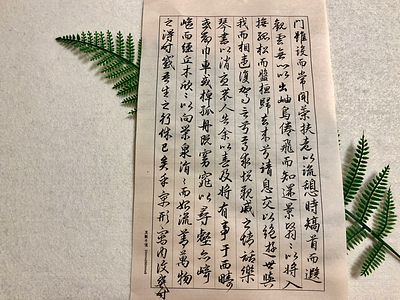 門雖設而常關策扶老以流憩時矯首而遐
觀雲無心以出岫鳥倦飛而知還景翳〻以將入
撫孤松而盤桓歸去來兮請息交以絕遊世與
我而相違復駕言兮焉求悅親戚之情話樂
琴書以消憂農人告余以春及將有事于西疇
或命巾車或棹孤舟既窈窕以尋壑亦崎
嶇而經丘木欣〻以向榮泉涓〻而始流善萬物
之得時感吾生之行休已矣乎寓形宇內復幾時